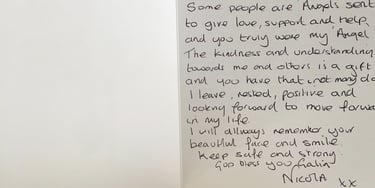 Some people are Angels sent
to give love, support and help
and you truly were my Angel
The kindness and understanding
towards me and others is a gift
and you have that (not many do
I leave, rested, positive and
looking forward to move forwa
in my life.
I will allways remember your
beautiful face and smile.
Keep safe and strong.
God bless you Galia
Nicola xx